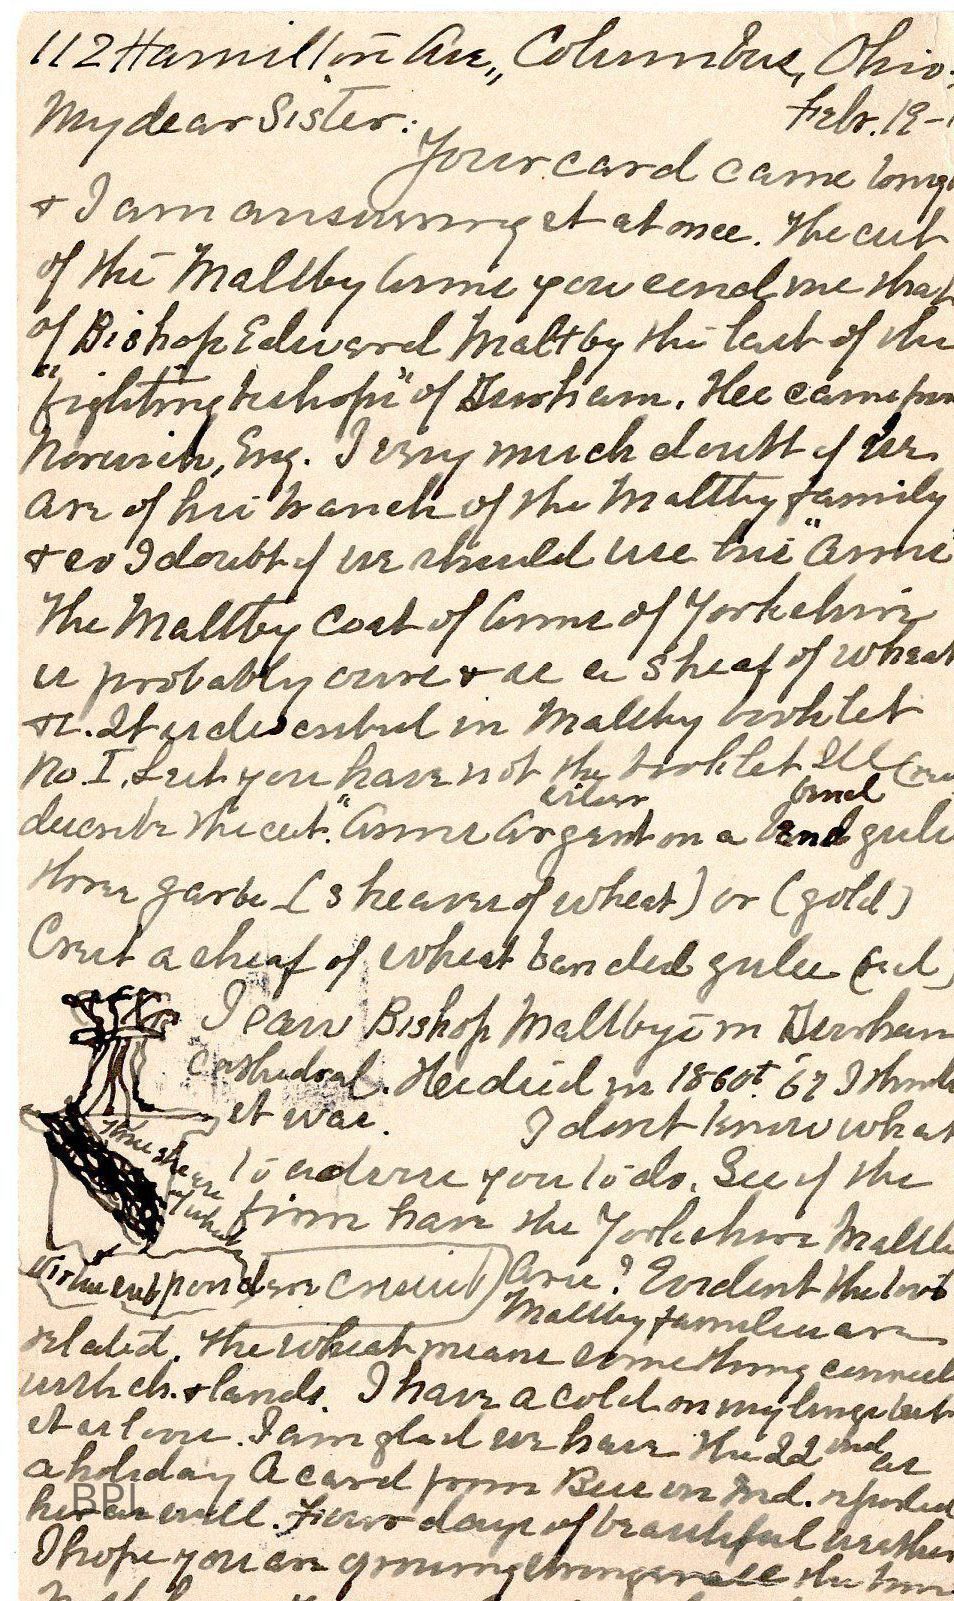 112 Hamilton Ave., Columbus, Ohio.
Febr. 19-1
My dear Sister:
Your card came
& I am answering it at once. The cut
of the Maltby Arms you send me that
of Bishop Edward Maltby the last of the
"fighting bishops" of Durham. He came from
Norwich, Eng. I very much doubt if we
are of his branch of the Maltby family
& so I doubt if we should use his "Arms
The Maltby Coat of Arms of Yorkshire
is probably ours & is a sheaf of wheat
&c. It is described in Maltby booklet
No. I. Lest you have not the booklet I'll
silver bend
describe the cut. "Arms Argent on a bend gules
three garbs (sheaves of wheat) or (gold)
Crest a sheaf of wheat banded gules (red)
I saw Bishop Maltby's in Durham
Cathedral. He died in 1860 or '67 I think
it was. I don't know what
three sheaves
of wheat
to advise you to do. See if the
firm have the Yorkshire Maltby
Arms? Evident the two
Maltby families are
related. The wheat means something connect
with ch. & lands. I have a cold on my lungs but
it is loose. I am glad we have the 22nd as
a holiday A card from Bess in Ind. reported
her as well. Four days of beautiful weather
I hope you are growing stronger all the time
BPL